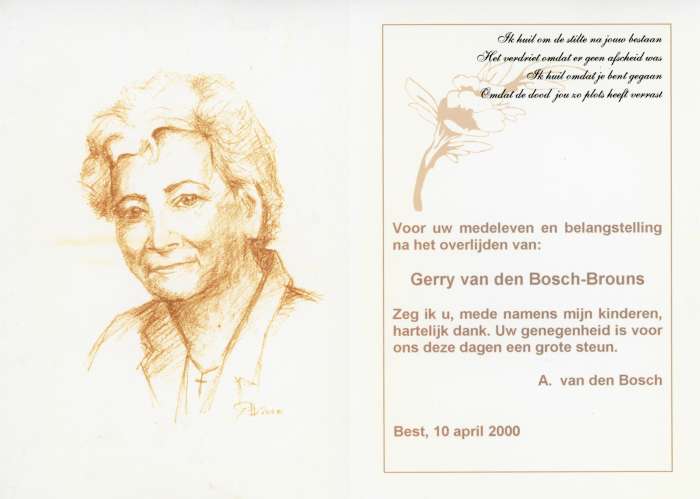 Ik huil om de stilte na jouw bestaan
Het verdriet omdat er geen afscheid was
Ik huil omdat je bent gegaan
Omdat de dood jou zo plots heeft verrast
Voor uw medeleven en belangstelling
na het overlijden van:
Gerry van den Bosch-Brouns
Zeg ik u, mede namens mijn kinderen,
hartelijk dank. Uw genegenheid is voor
ons deze dagen een grote steun.
A. van den Bosch
Best, 10 april 2000